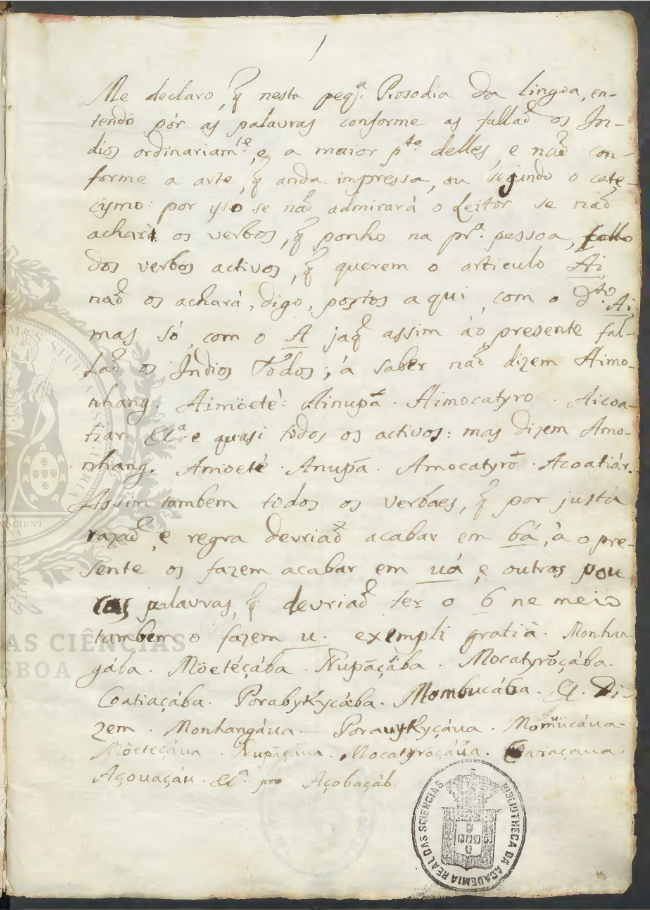 1
Me declaro, q̃ nesta peqª. Prosodia da lingoa, en-
tendo pór as palavras conforme as fallaõ os In-
dios ordinariam.te, e a maior p.te delles, e naõ con-
forme a arte, q̃ anda impressa, ou segundo o cate-
cismo: por ysso se naõ admirará o Leitor se naõ
achará os verbos, q̃ ponho na prª. pessoa,
dos verbos activos, q̃ querem o articulo Ai,
naõ os achará, digo, postos aqui, com o d.to Ai,
mas só, com o A jaq̃ assim áo presente fal-
laõ os Indios todos; á saber naõ dizem Aimo-
nhang. Aimöeté: Ainupã. Aimocatyro. Aicoa-
tiar. &ª e quasi todos os activos: mas dizem Amo-
nhang. Amöeté. Anupã. Amocatyrõ. Acoatiár.
Assim tambem todos os verbaes, q̃ por justa
razaõ, e regra devriaõ acabar em bá, á o pre-
sente os fazem acabar em uá, e outras pou
cas palavras, q̃ devriaõ ter o b ne meio
tambem o fazem u. exempli gratiâ. Monhan-
gába. Möeteçába. Nupãçába. Mocatyrõçába.
Coatiaçába. Porabykyçába. Mombucába. &. Di-
zem. Monhangáua. Porauykyçáua. Momucáua.
Möeteçáua. Nupãçáua. Mocatyrõçáua. Coatiaçaua.
Açouaçáu. &ª. pro Açobaçáb.
BIBLIOTHECA DA ACADEMIA REAL DAS SCIENCIAS
AS CIÊNCIAS
SBOA